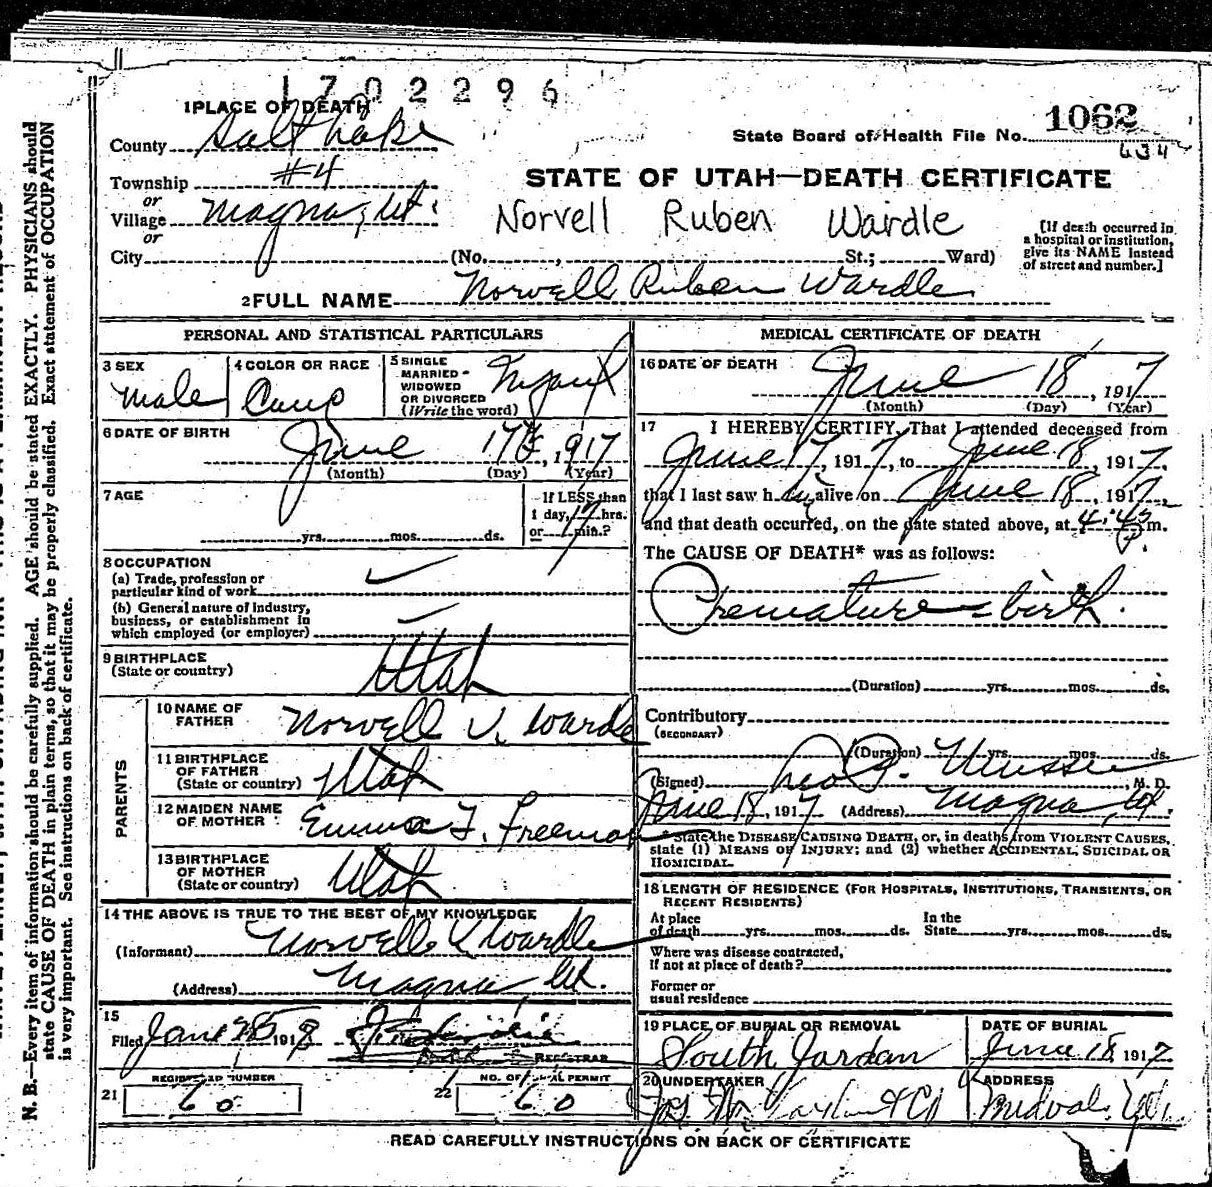 1702296
1 PLACE OF DEATH
County Salt Lake
State Board of Health File No. 1062
634
Township #4
or
Village Magna, Ut.
or
City (No. , St.; Ward)
STATE OF UTAH—DEATH CERTIFICATE
Norvell Ruben Wardle
[If death occurred in
a hospital or institution,
give its NAME instead
of street and number.]
2 FULL NAME Norvell Ruben Wardle
PERSONAL AND STATISTICAL PARTICULARS
3 SEX
Male
4 COLOR OR RACE
Cauc
5 SINGLE
MARRIED
WIDOWED
OR DIVORCED
(Write the word)
6 DATE OF BIRTH
June 17th, 1917
(Month) (Day) (Year)
7 AGE
yrs. mos. ds.
If LESS than
1 day, 17 hrs.
or min.?
8 OCCUPATION
(a) Trade, profession or
particular kind of work
(b) General nature of industry,
business, or establishment in
which employed (or employer)
9 BIRTHPLACE
(State or country)
Utah
PARENTS
10 NAME OF
FATHER
Norvell V. Wardle
11 BIRTHPLACE
OF FATHER
(State or country)
Utah
12 MAIDEN NAME
OF MOTHER
Emma F. Freeman
13 BIRTHPLACE
OF MOTHER
(State or country)
Utah
14 THE ABOVE IS TRUE TO THE BEST OF MY KNOWLEDGE
(Informant) Norvell V Wardle
(Address) Magna, Ut.
15
Filed 191
REGISTRAR
REGISTERED NUMBER
21 60
NO. OF BURIAL PERMIT
22 60
MEDICAL CERTIFICATE OF DEATH
16 DATE OF DEATH
June 18, 1917
(Month) (Day) (Year)
17 I HEREBY CERTIFY, That I attended deceased from
June 17, 1917, to June 18, 1917,
that I last saw him alive on June 18, 1917,
and that death occurred, on the date stated above, at m.
The CAUSE OF DEATH* was as follows:
Premature birth.
(Duration) yrs. mos. ds.
Contributory
(SECONDARY)
(Duration) yrs. mos. ds.
(Signed) M. D.
June 18, 1917 (Address) Magna, Ut.
* State the DISEASE CAUSING DEATH, or, in deaths from VIOLENT CAUSES,
state (1) MEANS OF INJURY; and (2) whether ACCIDENTAL, SUICIDAL OR
HOMICIDAL.
18 LENGTH OF RESIDENCE (FOR HOSPITALS, INSTITUTIONS, TRANSIENTS, OR
RECENT RESIDENTS)
At place
of death yrs. mos. ds.
In the
State yrs. mos. ds.
Where was disease contracted,
if not at place of death?
Former or
usual residence
19 PLACE OF BURIAL OR REMOVAL
South Jordan
DATE OF BURIAL
June 18, 1917
20 UNDERTAKER
ADDRESS
Midvale, Ut.
READ CAREFULLY INSTRUCTIONS ON BACK OF CERTIFICATE
N. B.—Every item of information should be carefully supplied. AGE should be stated EXACTLY. PHYSICIANS should
state CAUSE OF DEATH in plain terms, so that it may be properly classified. Exact statement of OCCUPATION
is very important. See instructions on back of certificate.